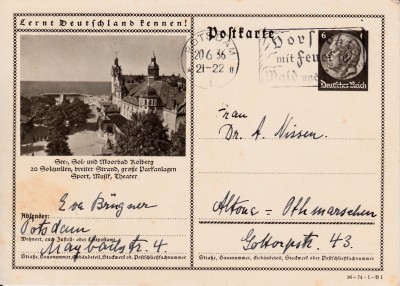 Lernt Deutschland kennen!
Postkarte
POTSDAM
20.6.36
21-22
Vorsicht
mit Feuer
Wald und
6
Deutsches Reich
See-, Sol- und Moorbad Kolberg
20 Solquellen, breiter Strand, große Parkanlagen
Sport, Musik, Theater
Eva Brügner
Absender:
Potsdam
Wohnort, auch Zustell- oder Leitpostamt
Maybachstr. 4.
Straße, Hausnummer, Gebäudeteil, Stockwerk od. Postschließfachnummer
Frau
Dr. A. Nissen.
Altona - Othmarschen
Gottorpstr. 43.
Straße, Hausnummer, Gebäudeteil, Stockwerk oder Postschließfachnummer
36-74-1-B1